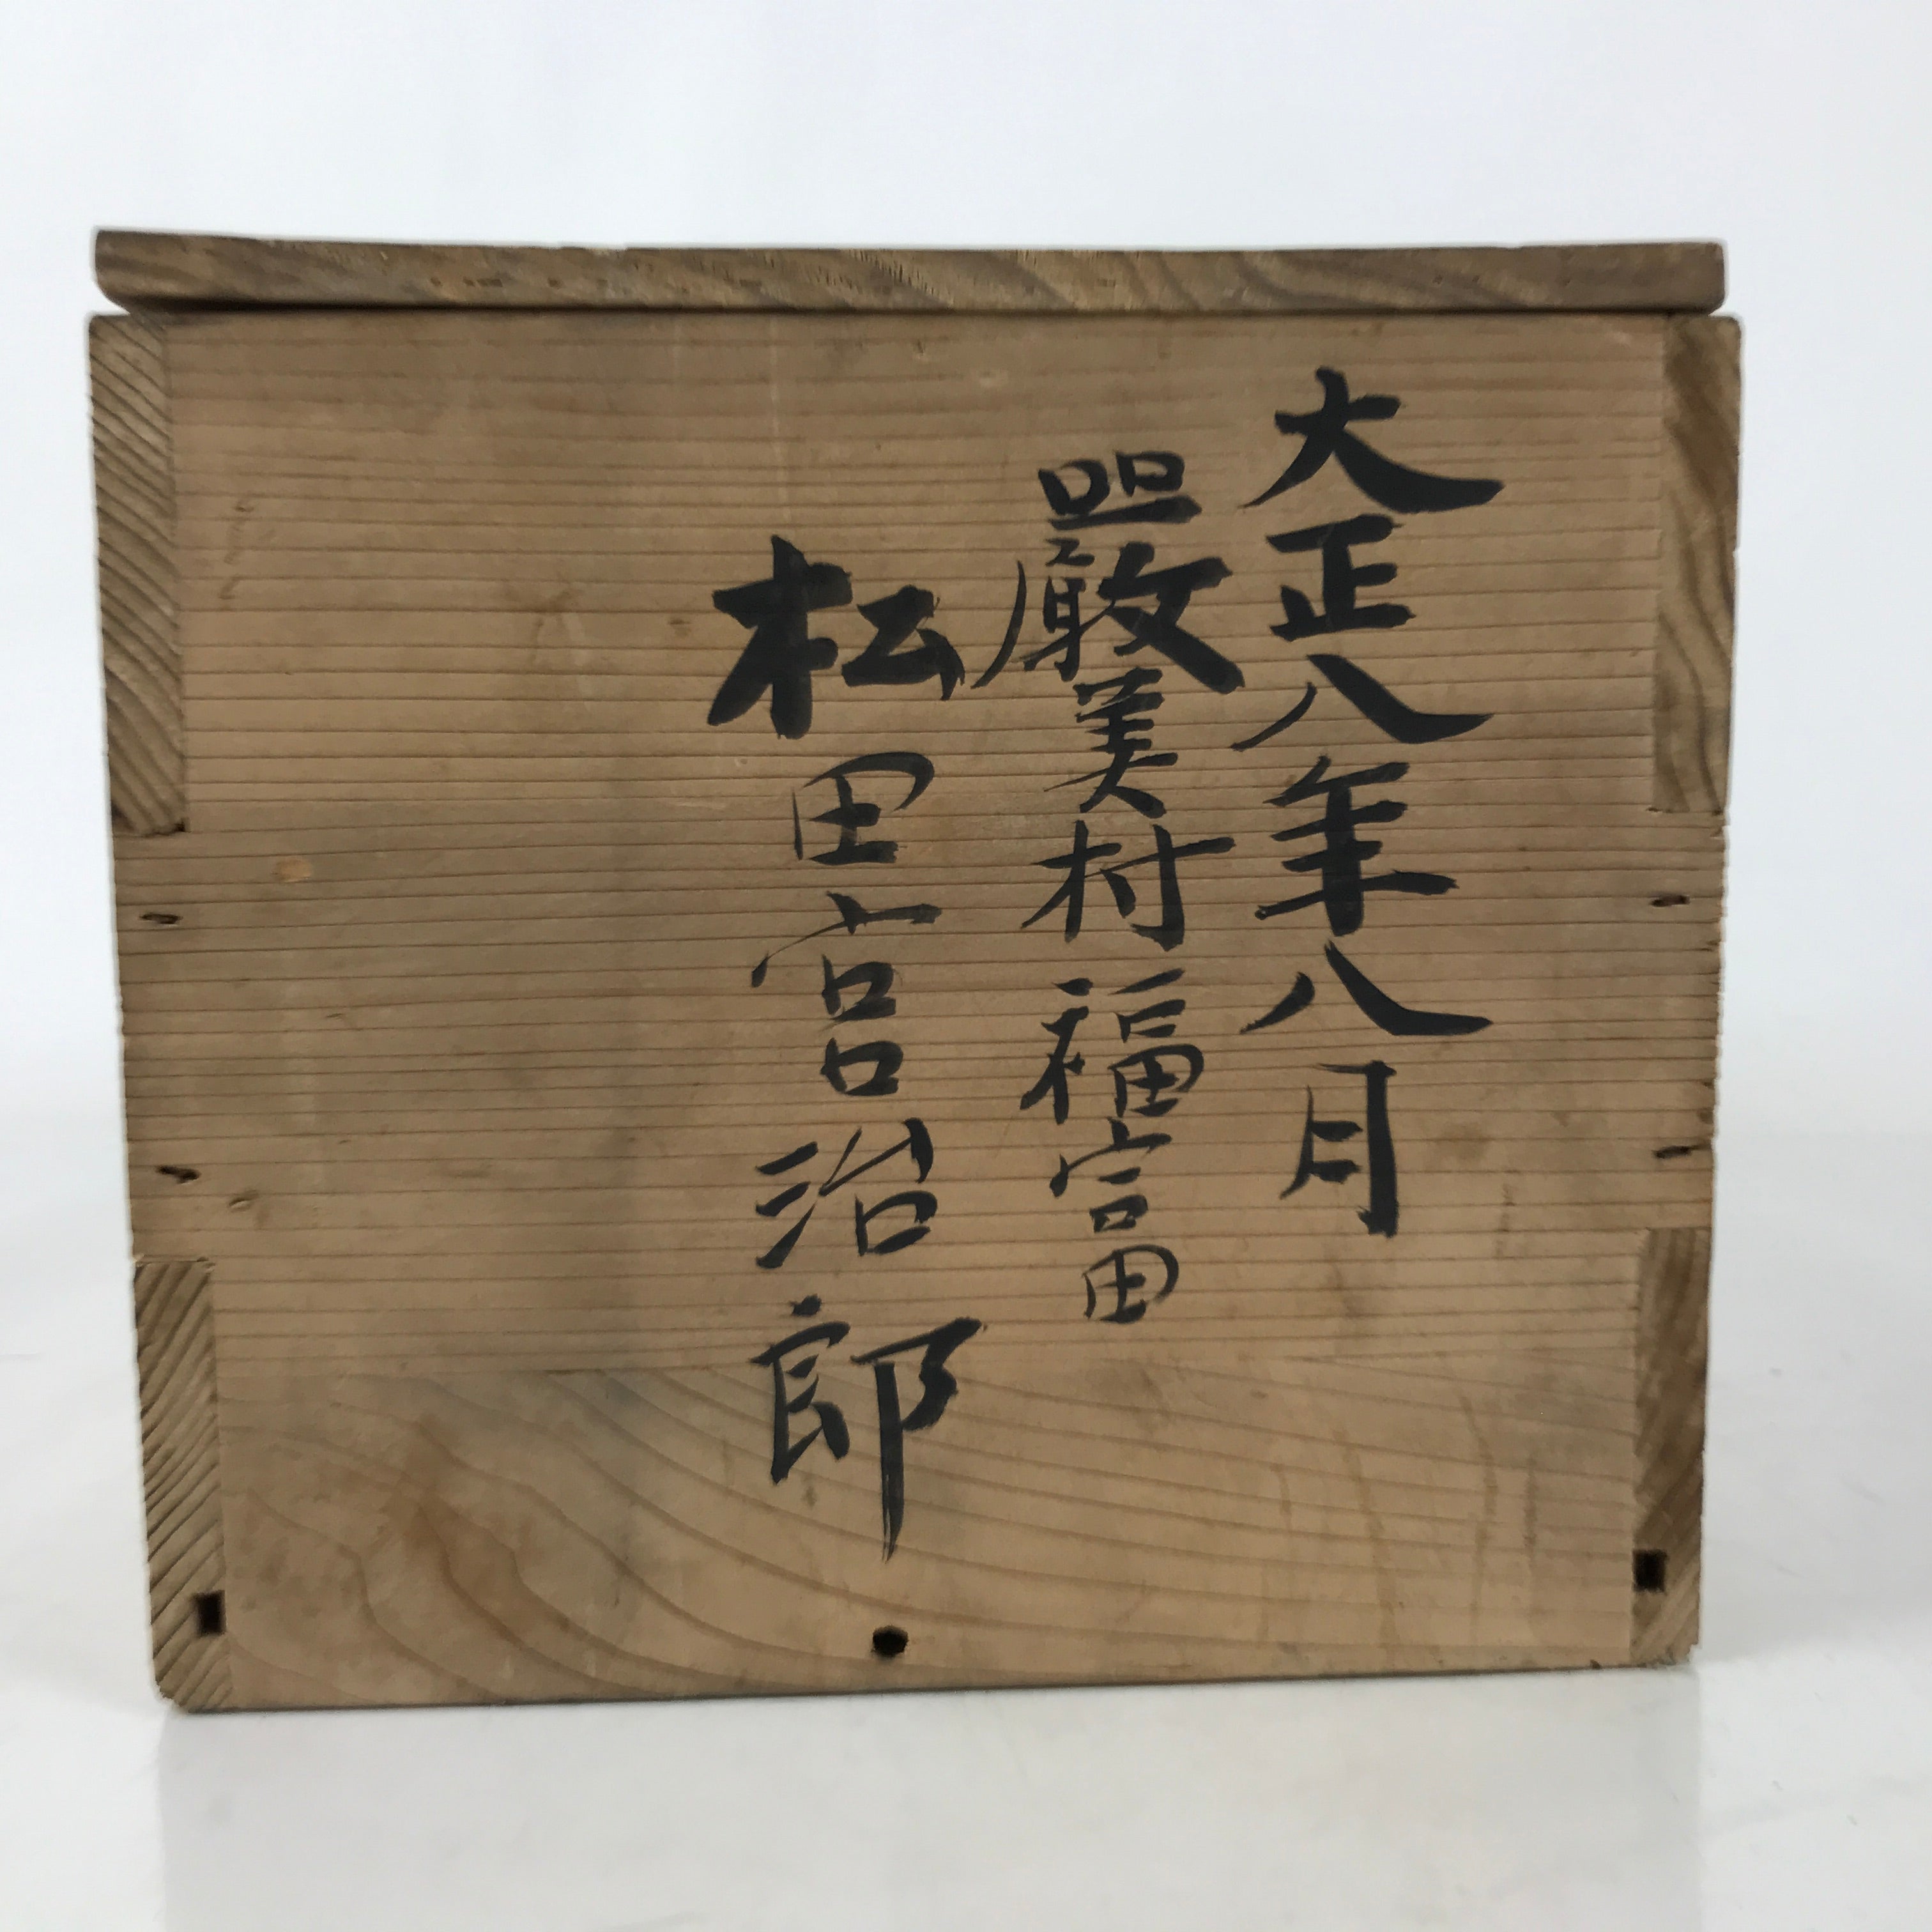 大正八年八月
嚴美村福富
松田宮治郎